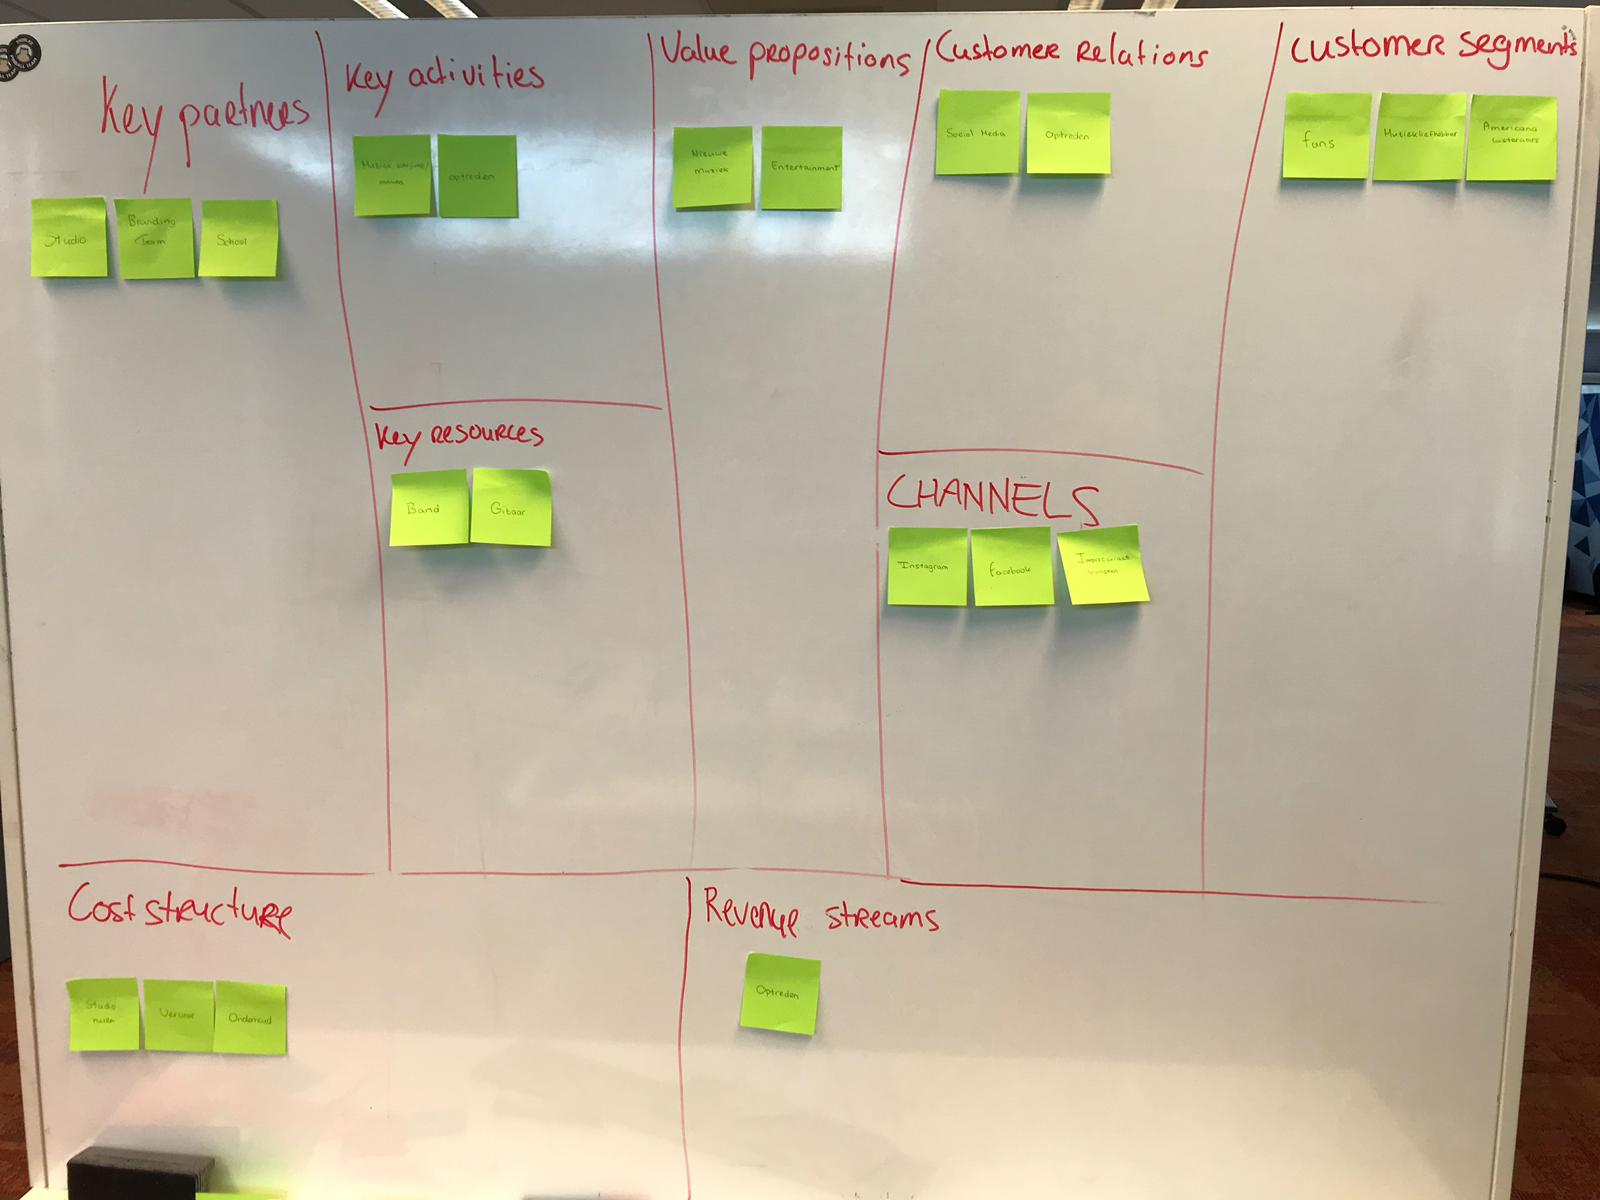 Key partners
Studio
Branding
Team
School
Key activities
optreden
Key resources
Band
Gitaar
Value propositions
Nieuwe
muziek
Entertainment
Customer Relations
Social Media
Optreden
CHANNELS
Instagram
Facebook
Customer segments
fans
Muziekliefhebber
Americana
luisteraars
Cost structure
Studio
huren
Vervoer
Onderhoud
Revenue streams
Optreden